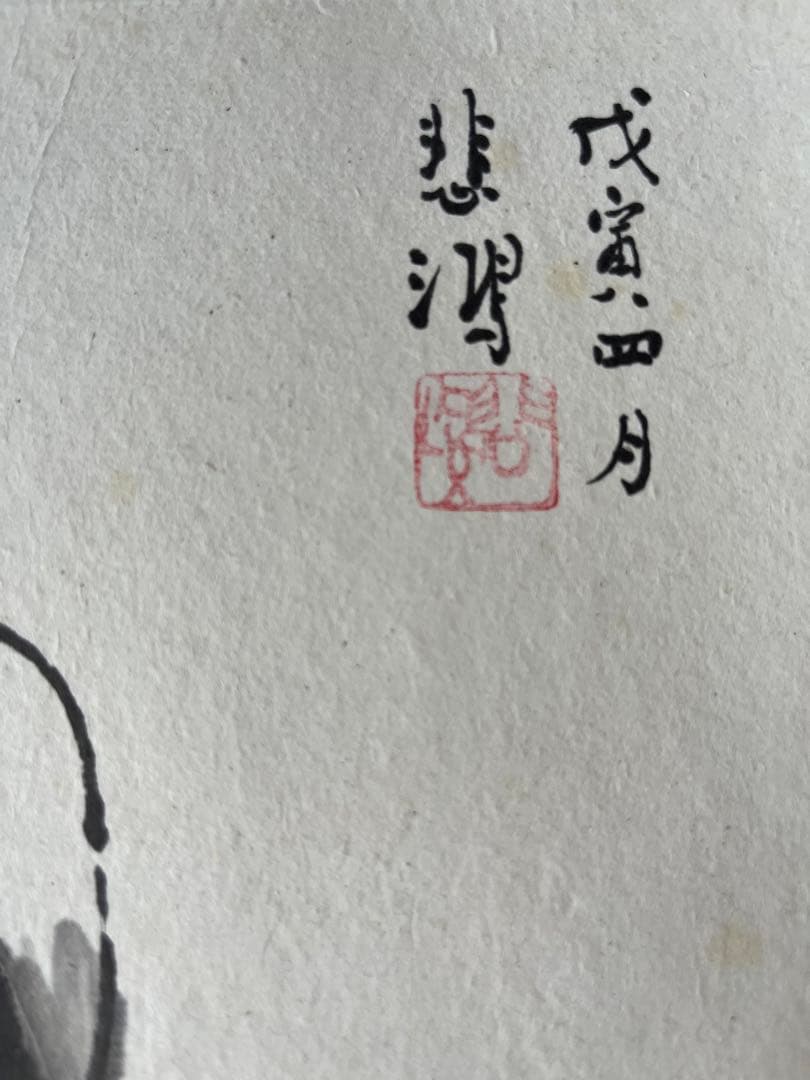 戊寅四月
悲鴻